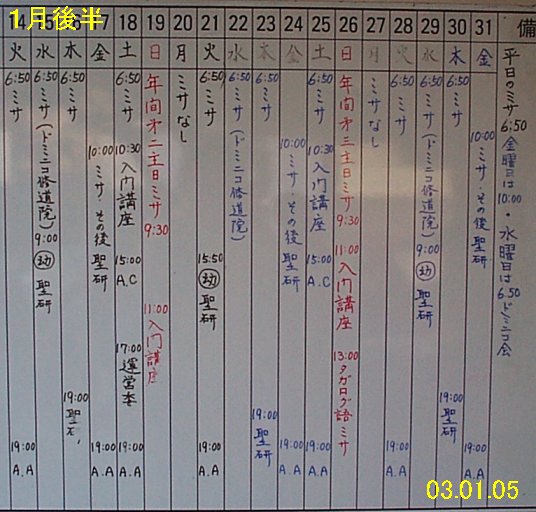 1月後半
14 15 16 17 18 19 20 21 22 23 24 25 26 27 28 29 30 31 備
火 水 木 金 土 日 月 火 水 木 金 土 日 月 火 水 木 金
6:50 ミサ
19:00 A.A
6:50 ミサ(ドミニコ修道院)
9:00 幼 聖研
6:50 ミサ
19:00 聖
10:00 ミサ・その後 聖研
19:00 A.A
6:50 ミサ
10:30 入門講座
15:00 A.C
17:00 運営委
19:00 A.A
年間第二主日ミサ 9:30
11:00 入門講座
ミサなし
6:50 ミサ
15:50 幼 聖研
19:00 A.A
6:50 ミサ(ドミニコ修道院)
6:50 ミサ
19:00 聖研
10:00 ミサ・その後 聖研
19:00 A.A
6:50 ミサ
10:30 入門講座
15:00 A.C
19:00 A.A
年間第三主日ミサ 9:30
11:00 入門講座
13:00 タガログ語ミサ
ミサなし
6:50 ミサ
19:00 A.A
6:50 ミサ(ドミニコ修道院)
9:00 幼 聖研
6:50 ミサ
19:00 聖研
10:00 ミサ・その後 聖研
19:00 A.A
平日のミサ 6:50 金曜日は10:00・水曜日は6.50ドミニコ会
03.01.05